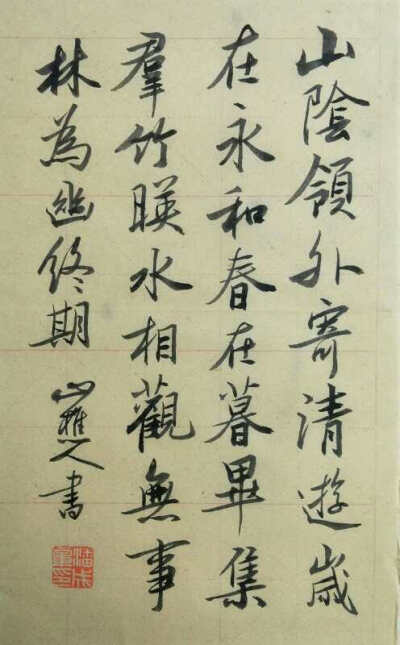 山陰領外寄清遊歲
在永和春在暮畢集
羣竹暎水相觀無事
林為幽終期 山樵人書